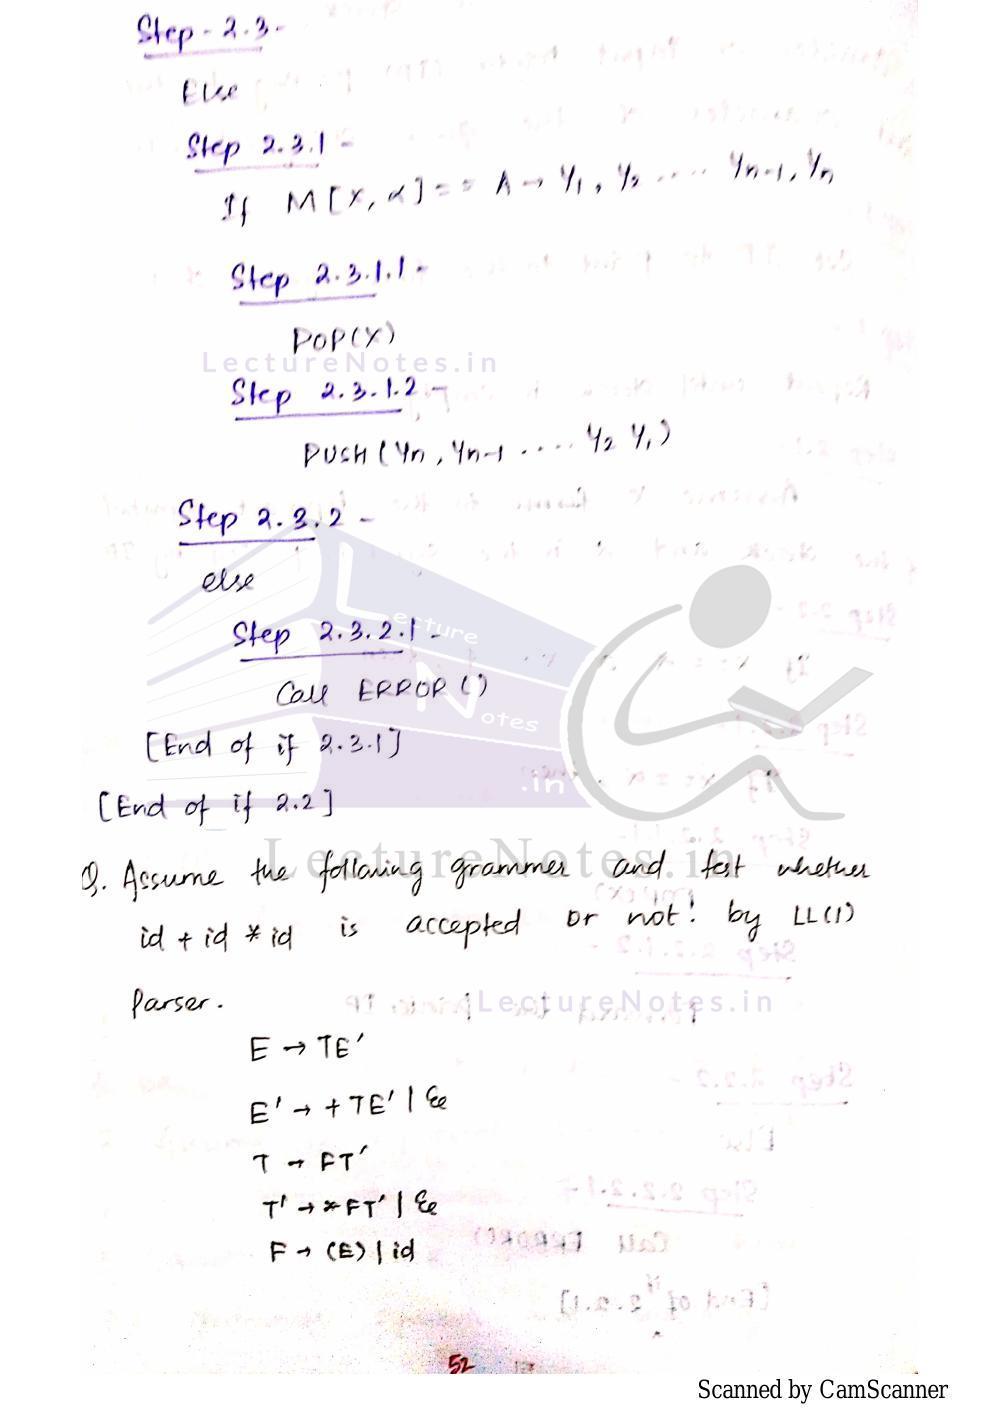 Step - 2.3 -
Else
Step 2.3.1 -
If M[X, α] == A → Y1, Y2 ..... Yn-1, Yn
Step 2.3.1.1 -
POP(X)
LectureNotes.in
Step 2.3.1.2 -
PUSH (Yn, Yn-1 ..... Y2 Y1)
Step 2.3.2 -
else
Step 2.3.2.1 -
Call ERROR ()
Lecture
Notes
.in
[End of if 2.3.1]
[End of if 2.2]
LectureNotes.in
Q. Assume the following grammer and test whether
id + id * id is accepted or not! by LL(1)
Parser.
LectureNotes.in
E → TE'
E' → +TE' | Ɛe
T → FT'
T' → *FT' | Ɛe
F → (E) | id
52
Scanned by CamScanner